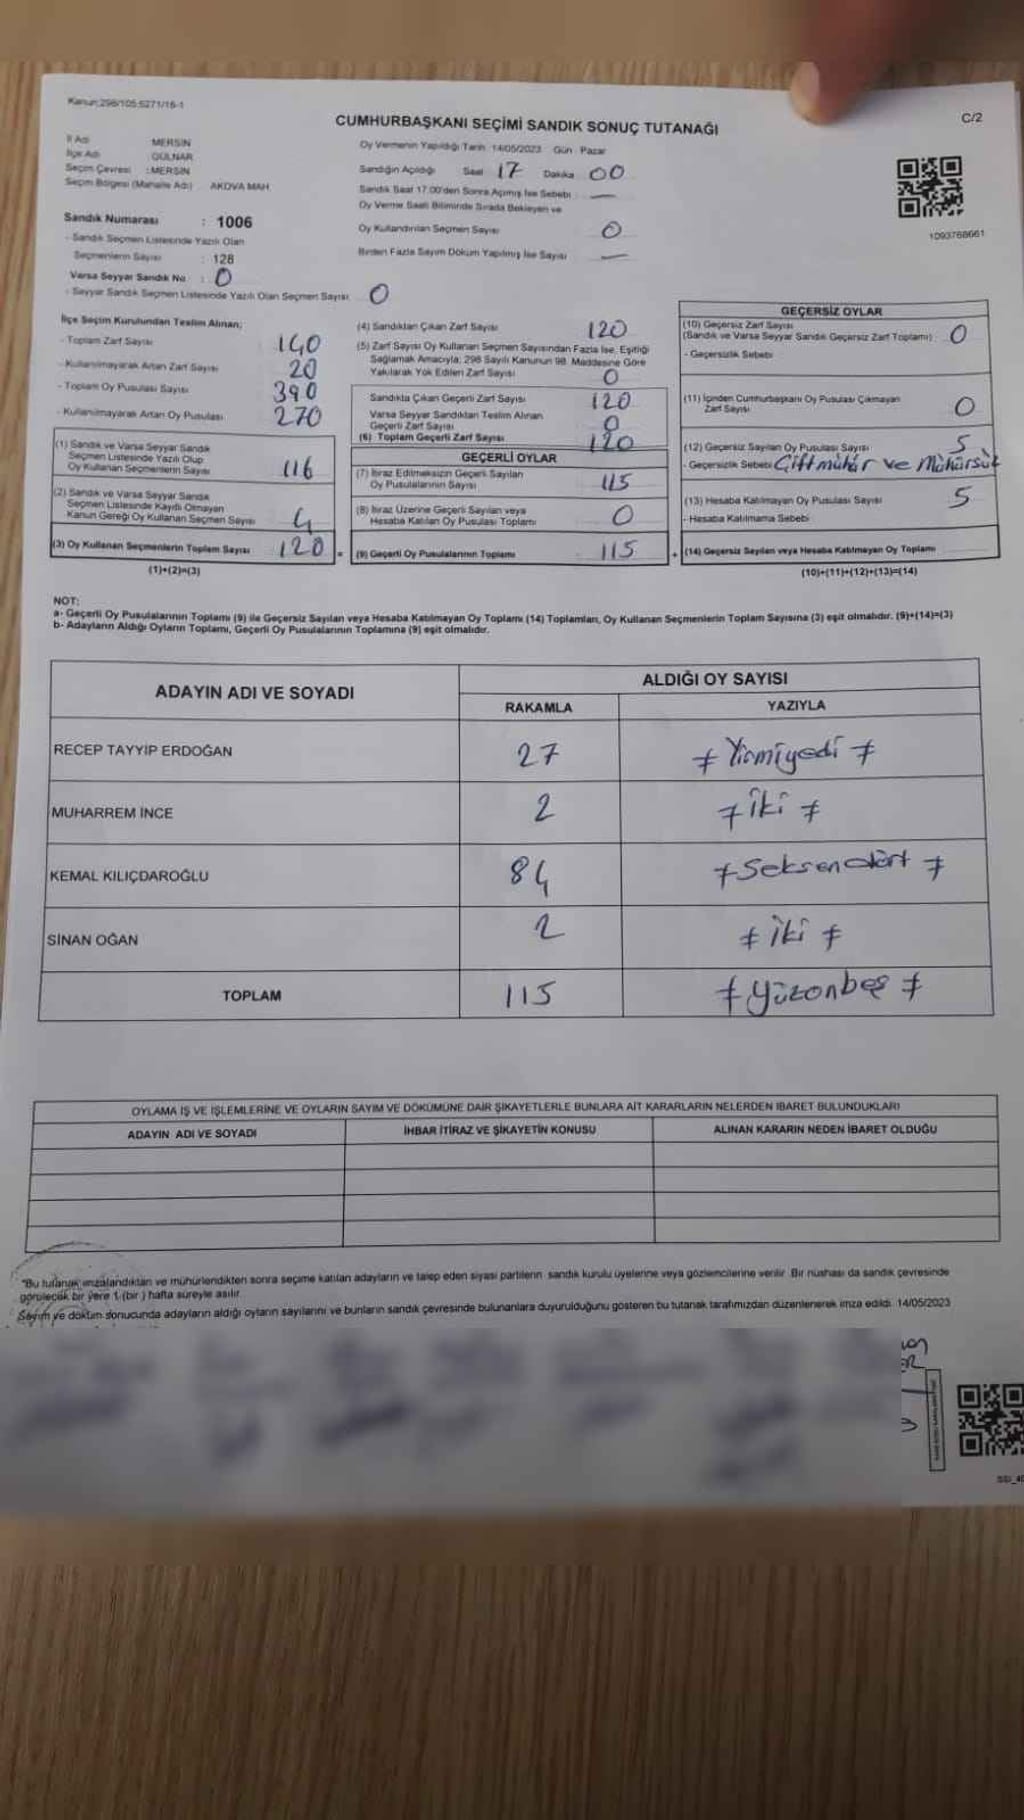 Kanun:298/105:5271/16-1
C/2
CUMHURBAŞKANI SEÇİMİ SANDIK SONUÇ TUTANAĞI
İl Adı MERSİN
İlçe Adı GÜLNAR
Seçim Çevresi :MERSİN
Seçim Bölgesi (Mahalle Adı) AKOVA MAH
Sandık Numarası : 1006
- Sandık Seçmen Listesinde Yazılı Olan
Seçmenlerin Sayısı : 128
Varsa Seyyar Sandık No : 0
- Seyyar Sandık Seçmen Listesinde Yazılı Olan Seçmen Sayısı 0
Oy Vermenin Yapıldığı Tarih 14/05/2023 Gün Pazar
Sandığın Açıldığı Saat 17 Dakika 00
Sandık Saat 17.00'den Sonra Açılmış İse Sebebi —
Oy Verme Saati Bitiminde Sırada Bekleyen ve
Oy Kullandırılan Seçmen Sayısı 0
Birden Fazla Sayım Döküm Yapılmış İse Sayısı —
1093768661
İlçe Seçim Kurulundan Teslim Alınan;
- Toplam Zarf Sayısı 140
- Kullanılmayarak Artan Zarf Sayısı 20
- Toplam Oy Pusulası Sayısı 390
- Kullanılmayarak Artan Oy Pusulası 270
(1) Sandık ve Varsa Seyyar Sandık
Seçmen Listesinde Yazılı Olup
Oy Kullanan Seçmenlerin Sayısı 116
(2) Sandık ve Varsa Seyyar Sandık
Seçmen Listesinde Kaydı Olmayan
Kanun Gereği Oy Kullanan Seçmen Sayısı 4
(3) Oy Kullanan Seçmenlerin Toplam Sayısı 120 =
(1)+(2)=(3)
(4) Sandıktan Çıkan Zarf Sayısı 120
(5) Zarf Sayısı Oy Kullanan Seçmen Sayısından Fazla İse, Eşitliği
Sağlamak Amacıyla; 298 Sayılı Kanunun 98. Maddesine Göre
Yakılarak Yok Edilen Zarf Sayısı 0
Sandıkta Çıkan Geçerli Zarf Sayısı 120
Varsa Seyyar Sandıktan Teslim Alınan
Geçerli Zarf Sayısı 0
(6) Toplam Geçerli Zarf Sayısı 120
GEÇERLİ OYLAR
(7) İtiraz Edilmeksizin Geçerli Sayılan
Oy Pusulalarının Sayısı 115
(8) İtiraz Üzerine Geçerli Sayılan veya
Hesaba Katılan Oy Pusulası Toplamı 0
(9) Geçerli Oy Pusulalarının Toplamı 115 +
GEÇERSİZ OYLAR
(10) Geçersiz Zarf Sayısı
(Sandık ve Varsa Seyyar Sandık Geçersiz Zarf Toplamı) 0
- Geçersizlik Sebebi
(11) İçinden Cumhurbaşkanı Oy Pusulası Çıkmayan
Zarf Sayısı 0
(12) Geçersiz Sayılan Oy Pusulası Sayısı 5
- Geçersizlik Sebebi Çift mühür ve Mühürsüz
(13) Hesaba Katılmayan Oy Pusulası Sayısı 5
- Hesaba Katılmama Sebebi
(14) Geçersiz Sayılan veya Hesaba Katılmayan Oy Toplamı
(10)+(11)+(12)+(13)=(14)
NOT:
a- Geçerli Oy Pusulalarının Toplamı (9) ile Geçersiz Sayılan veya Hesaba Katılmayan Oy Toplamı (14) Toplamları, Oy Kullanan Seçmenlerin Toplam Sayısına (3) eşit olmalıdır. (9)+(14)=(3)
b- Adayların Aldığı Oyların Toplamı, Geçerli Oy Pusulalarının Toplamına (9) eşit olmalıdır.
ADAYIN ADI VE SOYADI
ALDIĞI OY SAYISI
RAKAMLA YAZIYLA
RECEP TAYYİP ERDOĞAN 27 ≠ Yirmiyedi ≠
MUHARREM İNCE 2 ≠ İki ≠
KEMAL KILIÇDAROĞLU 84 ≠ Seksendört ≠
SİNAN OĞAN 2 ≠ İki ≠
TOPLAM 115 ≠ Yüzonbeş ≠
OYLAMA İŞ VE İŞLEMLERİNE VE OYLARIN SAYIM VE DÖKÜMÜNE DAİR ŞİKAYETLERLE BUNLARA AİT KARARLARIN NELERDEN İBARET BULUNDUKLARI
ADAYIN ADI VE SOYADI İHBAR İTİRAZ VE ŞİKAYETİN KONUSU ALINAN KARARIN NEDEN İBARET OLDUĞU
"Bu tutanak imzalandıktan ve mühürlendikten sonra seçime katılan adayların ve talep eden siyasi partilerin sandık kurulu üyelerine veya gözlemcilerine verilir. Bir nüshası da sandık çevresinde
görülecek bir yere 1 (bir) hafta süreyle asılır
Sayım ve döküm sonucunda adayların aldığı oyların sayılarını ve bunların sandık çevresinde bulunanlara duyurulduğunu gösteren bu tutanak tarafımızdan düzenlenerek imza edildi. 14/05/2023